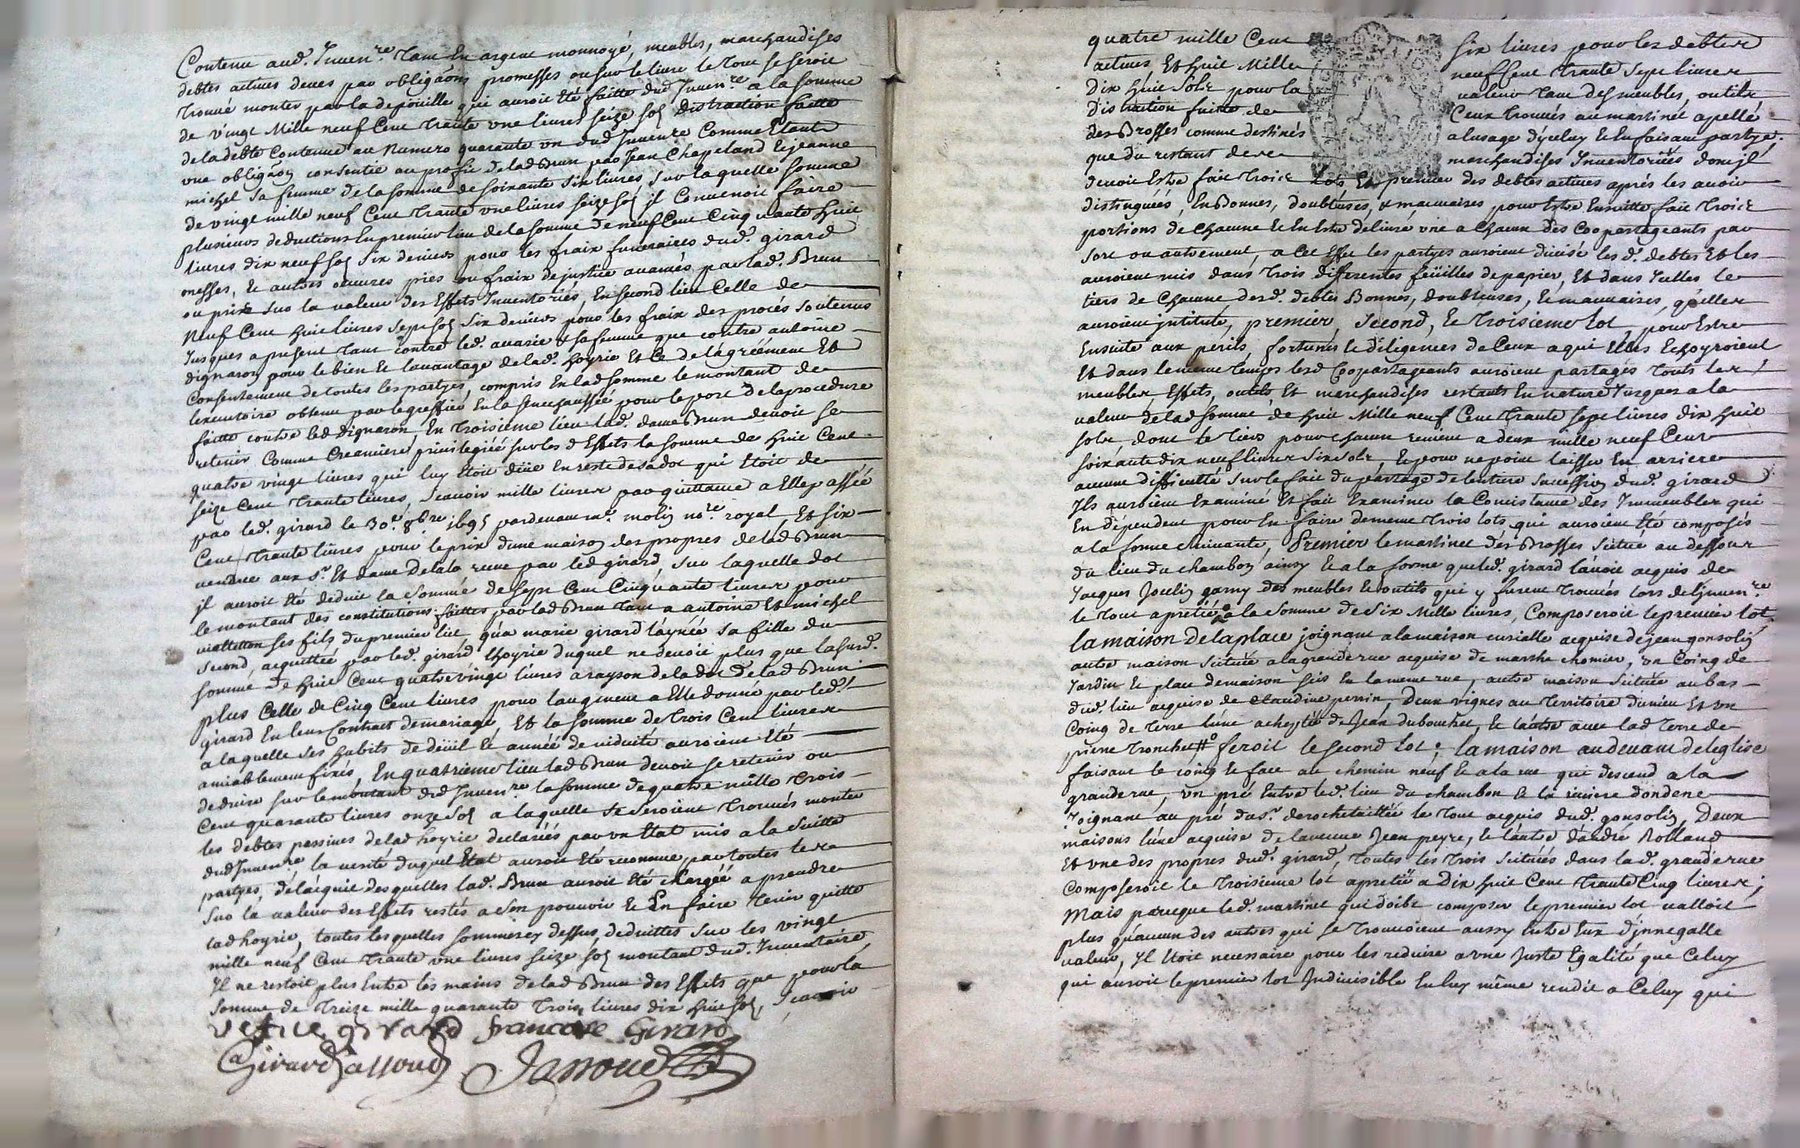 Contenu aud. Inven.re tant En argent monnoyé, meubles, marchandises
debtes actives deues par obligãons promesses ou sur le livre le tout se seroit
trouvé monter par la depouille qui auroit été faitte dud. Inven.re a la somme
de vingt Mille neuf Cent trante une livres seize sol distraction faitte
de la debte Contenue au Numero quarante un dud Inven.re Comme Etant
une obligãon consentie au profit de lad Brun par Jean Chapeland Et jeanne
michel sa femme de la somme de soixante six livres sur laquelle somme
de vingt mille neuf Cent trante une livres seize sol il Convenoit faire
plusieurs deductions En premier lieu de la somme de neuf Cent Cinquante huit
livres dix neuf sol six deniers pour les fraix funeraires dud. girard
messes, et autres oeuvres pies ou fraix de justice avancés par lad. Brun
ou prise sur la valeur des Effets Inventoriés, En second lieu Celle de
Neuf Cent huit livres sept sol six deniers pour les fraix des procés soutenus
Jusques a present tant contre led. avarie & sa femme que contre antoine
dignaron pour le bien et l'avantage de lad. hoyrie et Ce de l'agréement Et
Consentement de toutes les partyes, compris En lad somme le montant de
l'executoire obtenu par le greffier En la senechaussée pour le port de la procedure
faitte contre led dignaron, En troisieme lieu lad. dame Brun devoit se
retenir Comme Creanciere privilegiée sur les d Effets la somme de huit Cent
quatre vingt livres qui luy Etoit düe En reste de sa dot qui Etoit de
seize Cent trante livres, scavoir mille livres par quittance a Elle passée
par led. girard le 30.e 8bre 1695 pardevant me. molin no.re royal Et six
Cent trante livres pour le prix d'une maison des propres de lad Brun
vendue aux s.r Et dame Delala reune par led girard, sur laquelle dot
il auroit été deduit la Somme de Sept Cent Cinquante livres pour
le montant des constitutions faittes par lad Brun tant a antoine Et michel
vialleton ses fils du premier lit qu'a marie girard l'aynée sa fille du
second, acquittée par led. girard l'hoyrie duquel ne devoit plus que la susd.
somme de huit Cent quatre vingt livres a rayson de la dot de lad Brun
plus Celle de Cinq Cent livres pour l'augment a Elle donné par led.
girard En leur Contract de mariage Et la somme de trois Cent livres
a laquelle ses habits de deüil Et année de viduité auroient été
amiablement fixés, En quatrieme lieu lad Brun devoit se retenir ou
deduire sur le montant dud Inven.re la somme de quatre mille trois
Cent quarante livres onze sol a laquelle se seroient trouvés monter
les debtes passives de lad hoyrie declarés par un Etat mis a la suitte
dud Inven.re la verité duquel Etat auroit été reconnue par toutes les
partyes, de l'acquit desquelles lad. Brun auroit été chargée a prendre
sur la valeur des Effets restés a son pouvoir et En faire tenir quitte
lad hoyrie, toutes lesquelles sommes cy dessus, deduittes sur les vingt
mille neuf Cent trante une livres seize sol montant dud. Inventaire
Il ne restoit plus Entre les mains de lad Brun des Effets que pour la
somme de treize mille quarante trois livres dix huit sol, scavoir
vefve girard francoise Girard
a Girard Jassoud Jassoud
quatre mille Cent six livres pour les debtes
actives Et huit Mille neuf Cent trante sept livres
dix huit sols pour la valeur tant des meubles, outils
distraction faitte de Ceux trouvés au martinet apellé
des Brosses comme destinés a l'usage d'yceluy et En faisant partye.
que du restant de marchandises Inventoriées dont il
devoit Estre fait trois Lots Et premier des debtes actives aprés les avoir
distinguées, En Bonnes, doubteuses, & mauvaises pour Estre Ensuitte fait trois
portions de Chacune et En Estre delivré une a Chacun des Coopartageants par
sort ou autrement, a Cet Effet les partyes auroient divisé les d. debtes Et les
auroient mis dans trois differentes feüilles de papier, Et dans Icelles le
tiers de Chacune desd. debtes Bonnes, doubteuses, et mauvaises, qu'elles
auroient jntitulé, premier, second, et troisieme lot, pour Estre
Ensuite aux perils fortunes et diligences de Ceux a qui Elles Echoyroient
Et dans le meme temps lesd Coopartageants auroient partagés touts les
meubles, Effets, outils Et marchandises restants En nature Jusques a la
valeur de lad somme de huit Mille neuf Cent trante sept livres dix huit
sols dont le tiers pour chacun revient a deux mille neuf Cent
soixante dix neuf livres six sols Et pour ne point laisser En arriere
aucune difficulté sur le fait du partage de l'entiere succession dud. girard
Ils auroient Examiné Et fait Examiner la Consistance des Immeubles qui
En dépendent pour En faire de meme trois lots qui auroient été composés
a la forme suivante, Premier le martinet des Brosses scitué au dessous
du lieu du chambon ainsy et a la forme que led. girard l'avoit acquis de
Jacques Joulin garny des meubles et outils qui y furent trouvés lors de l'Inven.re
le tout apretié a la somme de six Mille livres, Composeroit le premier lot
la maison De la place joignant a la maison curialle acquise de jean gonsolin
autre maison scituée a la grande rue acquise de marthe chomier, un Coing de
Jardin et place de maison sçis En la meme rue, autre maison scituée au bas
dud. lieu acquise de Claudine perrin, Deux vignes au territoire du meu Et un
Coing de terre lune acheptée de Jean dubouchet, et l'autre avec lad terre de
pierre tronchet feroit le second lot; la maison au devant de l'eglise
faisant le coing et face au chemin neuf et a la rue qui descend a la
grande rue, un pré Entre led. lieu du chambon & la riviere dondene
Joignant au pré du s.r derochetaillée le tout acquis dud. gonsolin, Deux
maisons l'une acquise de la veuve Jean peyre, et l'autre d'andré Rolland
Et une des propres dud. girard, toutes les trois scituées dans la d. grande rue
Composeroit le troisieme lot apretié a dix huit Cent trante Cinq livres;
Mais parceque led. martinet qui doibt composer le premier lot valloit
plus qu'aucun des autres qui se trouvoient aussy Entre Eux d'jnnegalle
valeur, Il Etoit necessaire pour les reduire a une Juste Egalité que Celuy
qui auroit le premier lot Indivisible En luy même rendit a Celuy qui